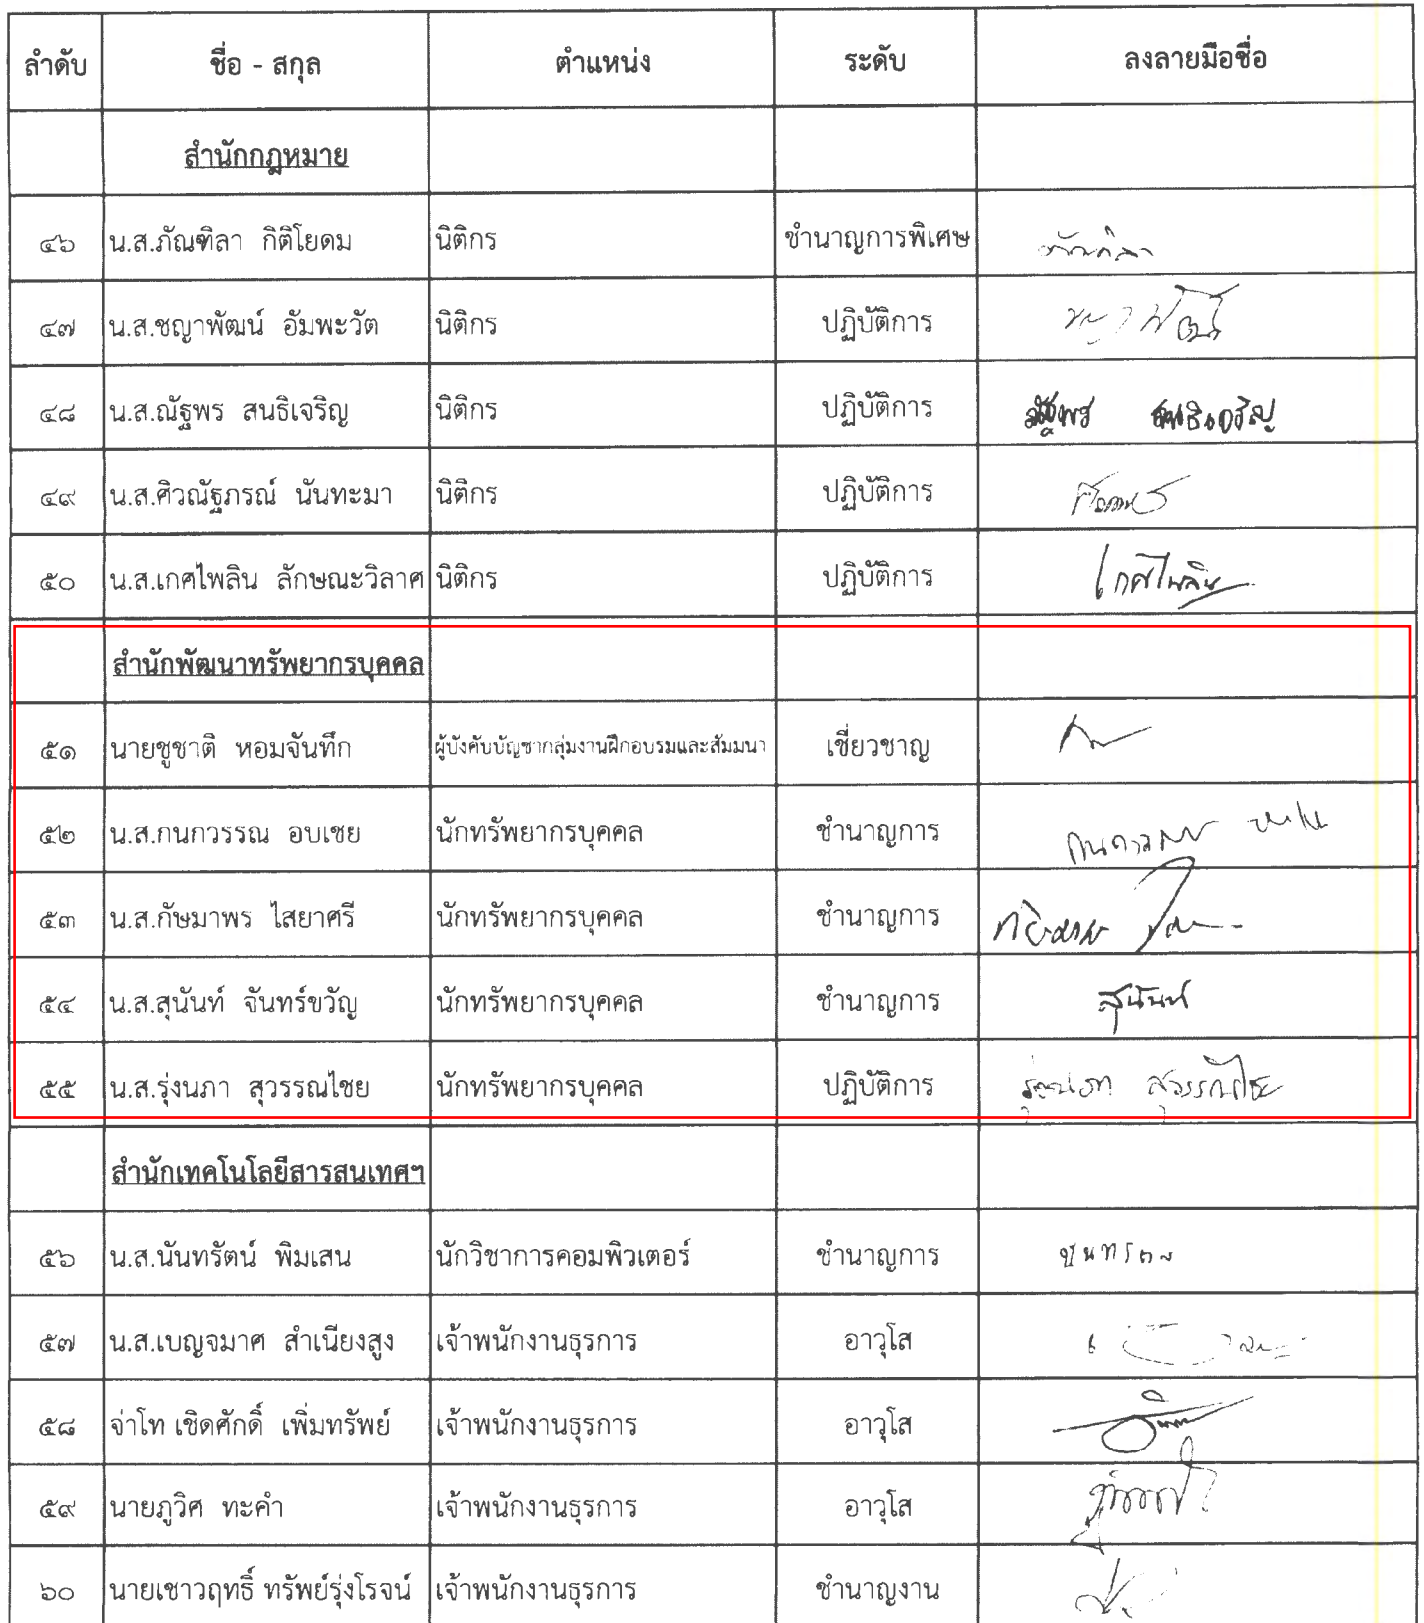 ลำดับ ชื่อ - สกุล ตำแหน่ง ระดับ ลงลายมือชื่อ
สำนักกฎหมาย
๔๖ น.ส.ภัณฑิลา กิติโยดม นิติกร ชำนาญการพิเศษ ภัณฑิลา
๔๗ น.ส.ชญาพัฒน์ อัมพะวัต นิติกร ปฏิบัติการ ชญาพัฒน์
๔๘ น.ส.ณัฐพร สนธิเจริญ นิติกร ปฏิบัติการ ณัฐพร สนธิเจริญ
๔๙ น.ส.ศิวณัฐภรณ์ นันทะมา นิติกร ปฏิบัติการ
๕๐ น.ส.เกศไพลิน ลักษณะวิลาศ นิติกร ปฏิบัติการ เกศไพลิน
สำนักพัฒนาทรัพยากรบุคคล
๕๑ นายชูชาติ หอมจันทึก ผู้บังคับบัญชากลุ่มงานฝึกอบรมและสัมมนา เชี่ยวชาญ
๕๒ น.ส.กนกวรรณ อบเชย นักทรัพยากรบุคคล ชำนาญการ กนกวรรณ อบเชย
๕๓ น.ส.กัษมาพร ไสยาศรี นักทรัพยากรบุคคล ชำนาญการ
๕๔ น.ส.สุนันท์ จันทร์ขวัญ นักทรัพยากรบุคคล ชำนาญการ สุนันท์
๕๕ น.ส.รุ่งนภา สุวรรณไชย นักทรัพยากรบุคคล ปฏิบัติการ รุ่งนภา สุวรรณไชย
สำนักเทคโนโลยีสารสนเทศฯ
๕๖ น.ส.นันทรัตน์ พิมเสน นักวิชาการคอมพิวเตอร์ ชำนาญการ
๕๗ น.ส.เบญจมาศ สำเนียงสูง เจ้าพนักงานธุรการ อาวุโส
๕๘ จ่าโท เชิดศักดิ์ เพิ่มทรัพย์ เจ้าพนักงานธุรการ อาวุโส
๕๙ นายภูวิศ ทะคำ เจ้าพนักงานธุรการ อาวุโส
๖๐ นายเชาวฤทธิ์ ทรัพย์รุ่งโรจน์ เจ้าพนักงานธุรการ ชำนาญงาน